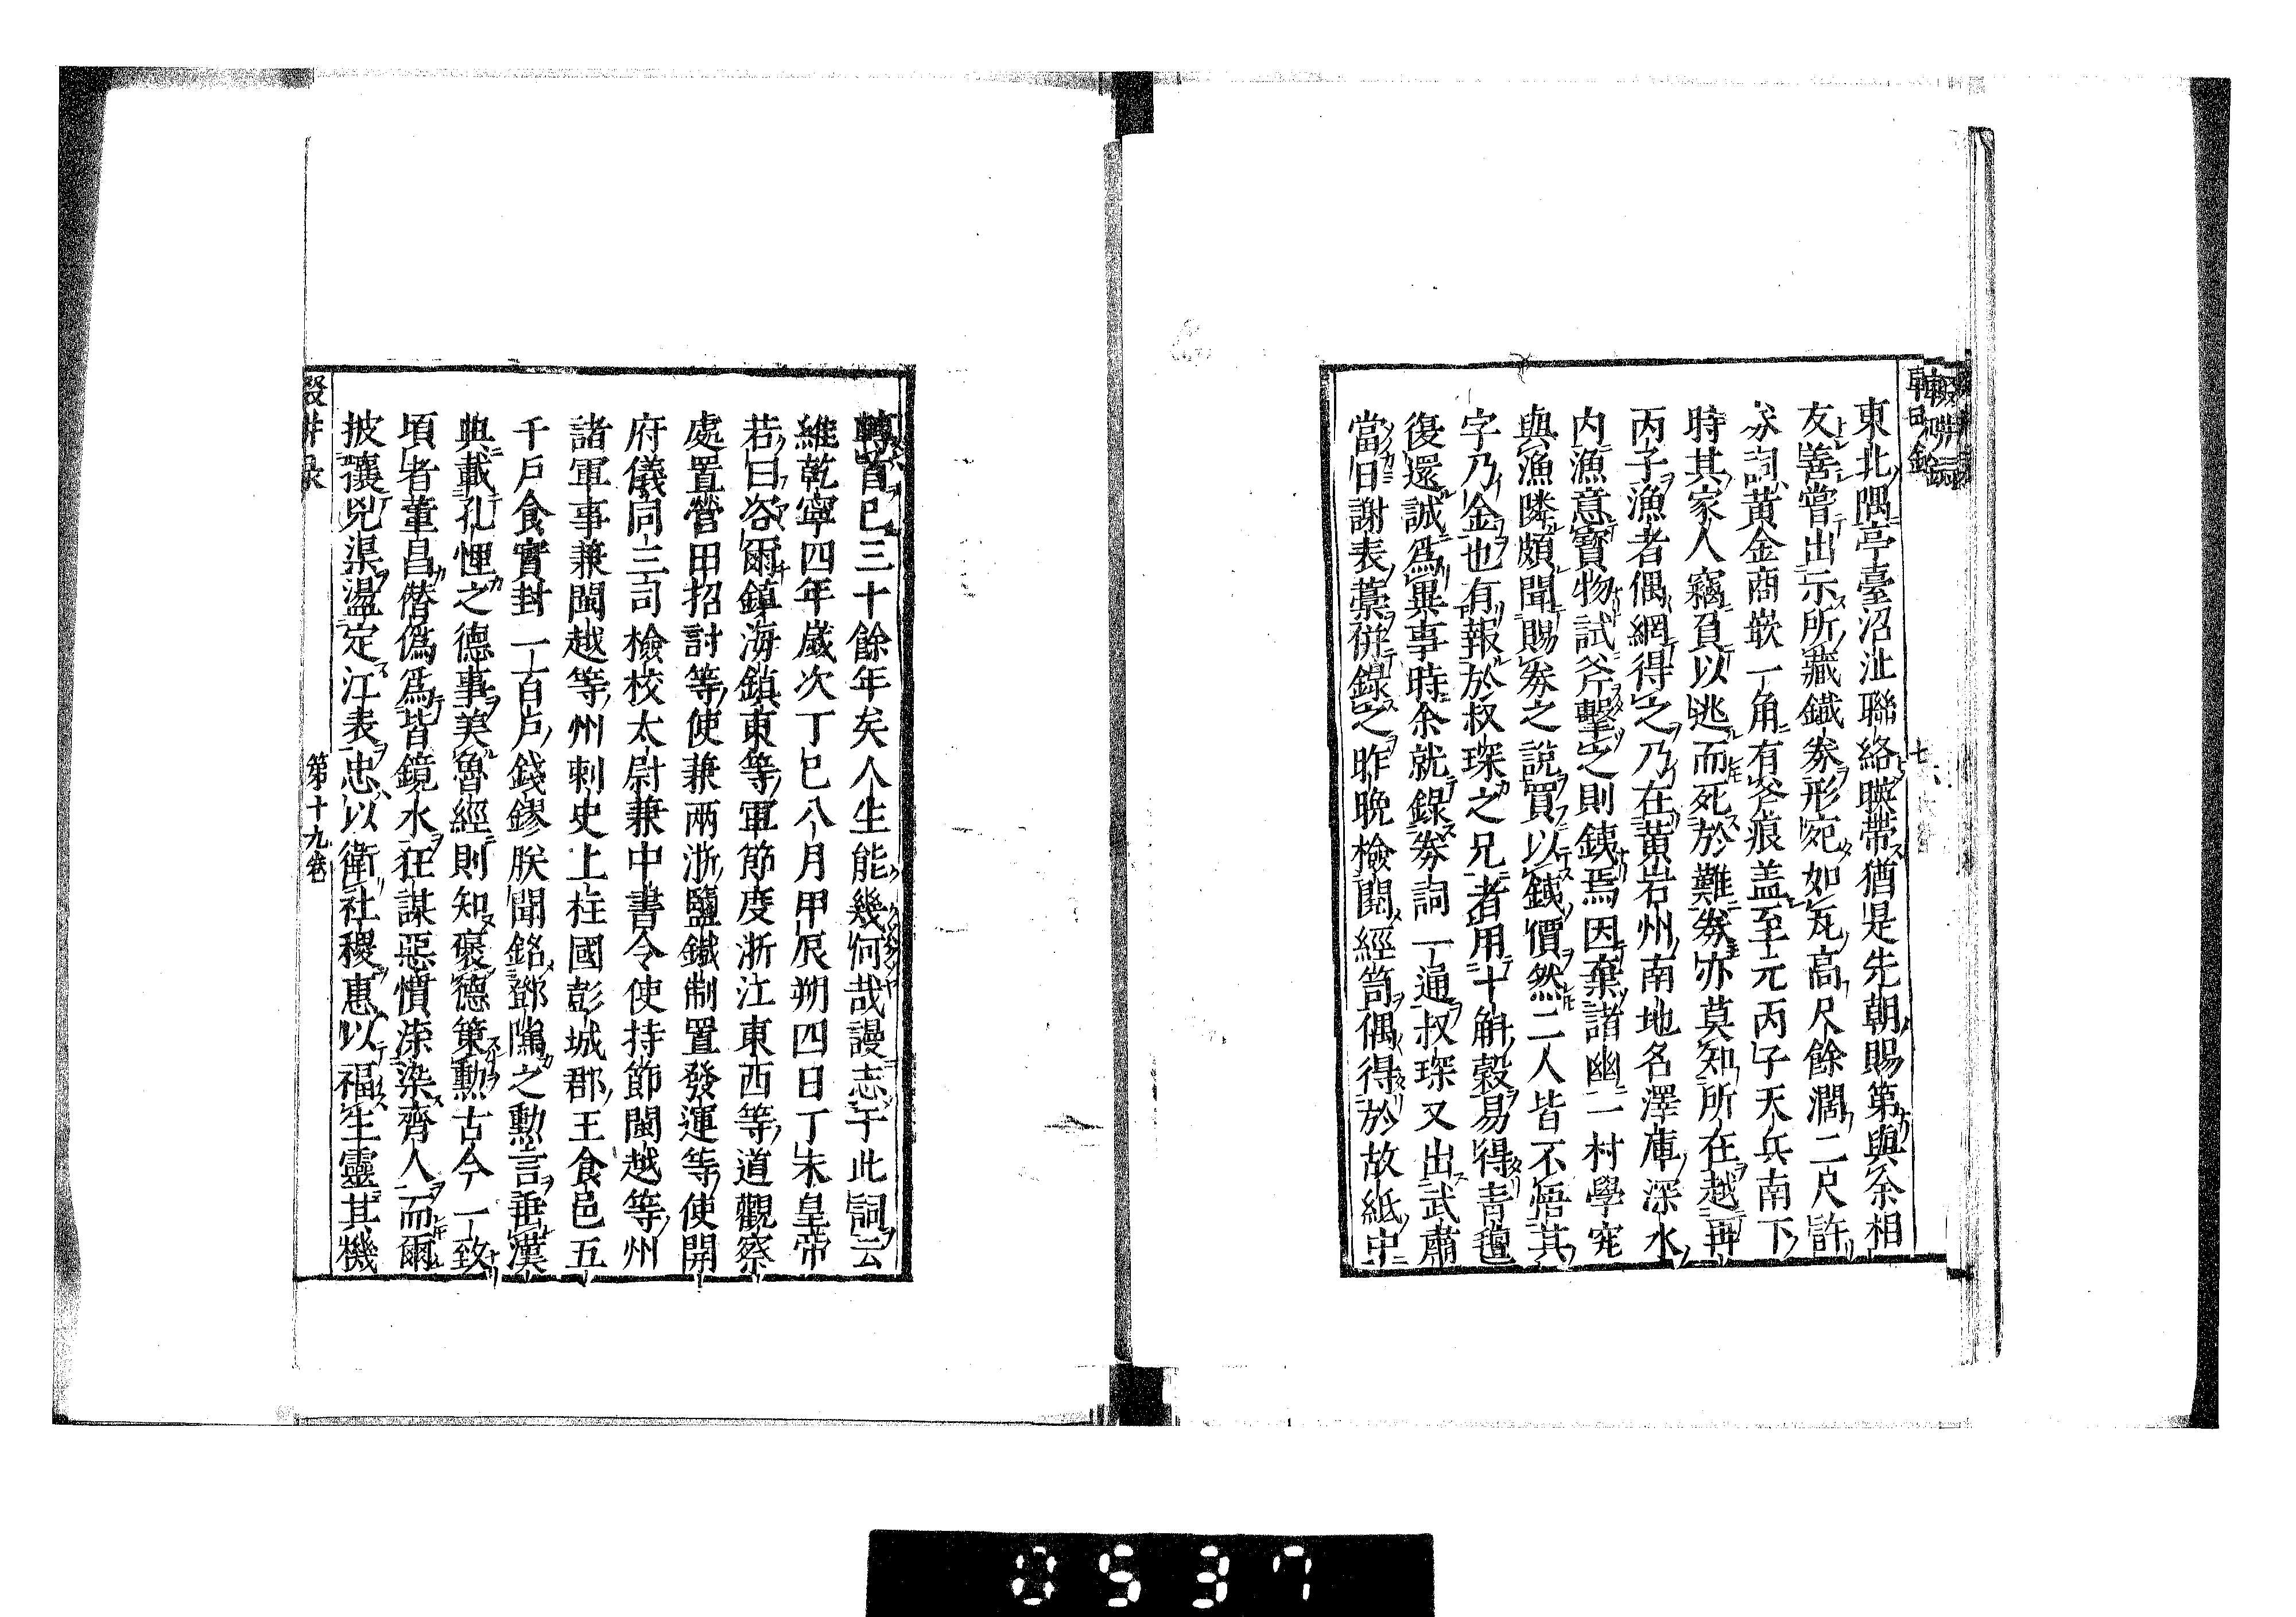 東北隅亭臺沼沚聯絡暎帶猶是先朝賜第與余相
友善嘗出示所藏鐵券形宛如瓦高尺餘濶二尺許
券詞黄金商嵌一角有斧痕盖至元丙子天兵南下
時其家人竊負以逃而死於難券亦莫知所在越再
丙子漁者偶網得之乃在黄岩州南地名澤庫深水
内漁意寳物試斧擊之則鉄焉因棄諸幽一村學究
與漁隣頗聞賜券之說買以鉄價然二人皆不悟其
字乃金也有報於叔琛之兄者用十斛穀易得青氊
復還誠為異事時余就錄券詞一通叔琛又出武肅
當日謝表藁併錄之昨晚檢閱經笥偶得於故紙中
轉首已三十餘年矣人生能幾何哉謾志于此詞云
維乾寧四年歲次丁巳八月甲辰朔四日丁未皇帝
若曰咨爾鎮海鎮東等軍節度浙江東西等道觀察
處置營田招討等使兼兩浙鹽鐵制置發運等使開
府儀同三司檢校太尉兼中書令使持節閩越等州
諸軍事兼閩越等州刺史上柱國彭城郡王食邑五
千戶食實封一百戶錢鏐朕聞銘鄧隲之勲言垂漢
典載孔悝之德事美魯經則知褒德策勲古今一致
頃者董昌僣僞爲昏鏡水狂謀惡慣渫染齊人而爾
披攘兇渠盪定江表忠以衛社稷惠以福生靈其機
第十九卷